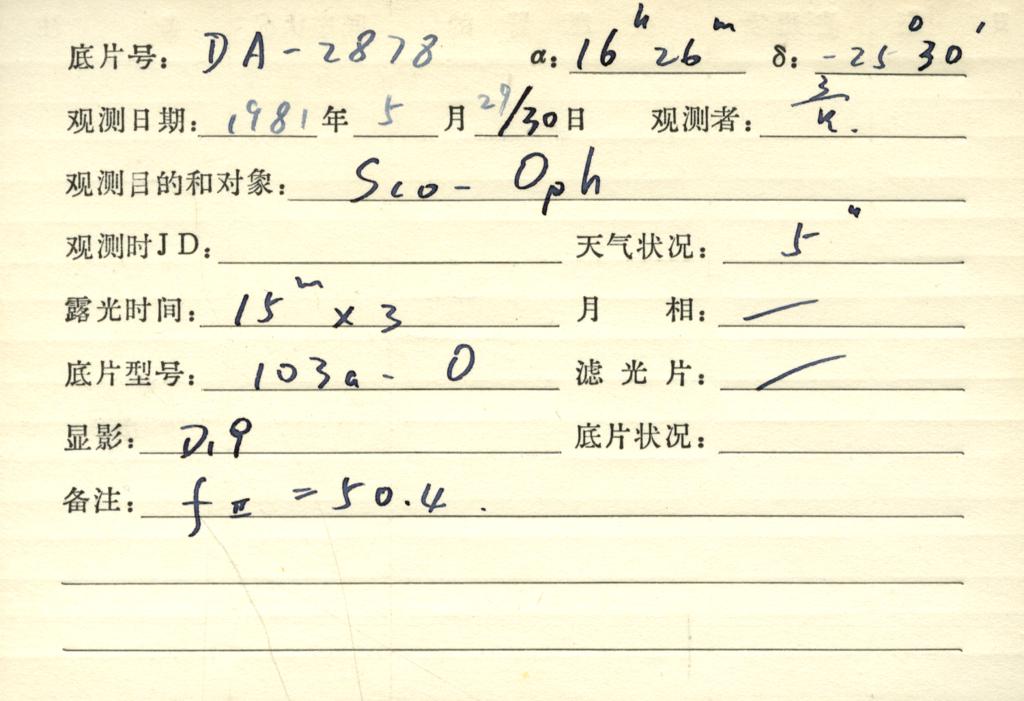 底片号: DA-2878 α: 16h 26m δ: -25° 30′
观测日期: 1981年 5月 29/30日 观测者:
观测目的和对象: Sco - Oph
观测时JD: 天气状况: 5"
露光时间: 15m × 3 月 相: —
底片型号: 103a - O 滤光片: —
显影: D19 底片状况:
备注: fⅡ = 50.4.